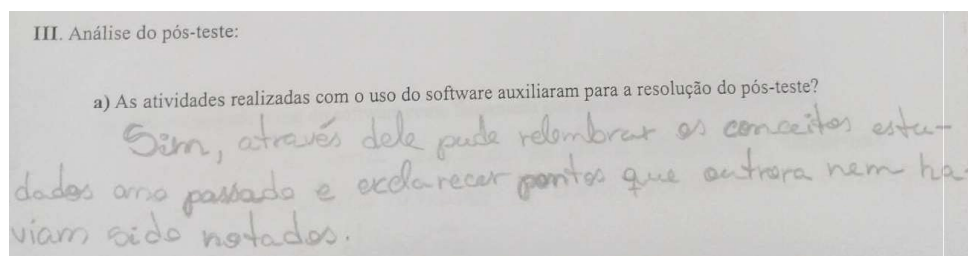 III. Análise do pós-teste:
a) As atividades realizadas com o uso do software auxiliaram para a resolução do pós-teste?
Sim, através dele pude relembrar os conceitos estu-
dados ano passado e exclarecer pontos que outrora nem ha-
viam sido notados.